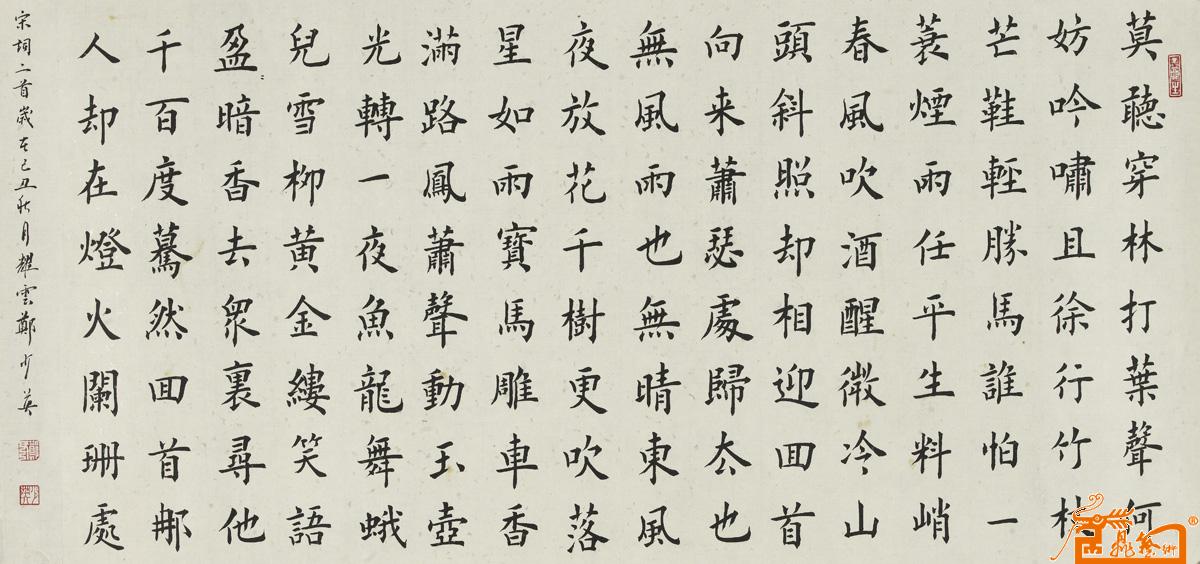 莫聽穿林打葉聲何
妨吟嘯且徐行竹杖
芒鞋輕勝馬誰怕一
蓑煙雨任平生料峭
春風吹酒醒微冷山
頭斜照却相迎回首
向来蕭瑟處歸去也
無風雨也無晴東風
夜放花千樹更吹落
星如雨寶馬雕車香
滿路鳳蕭聲動玉壺
光轉一夜魚龍舞蛾
兒雪柳黃金縷笑語
盈暗香去眾裏尋他
千百度驀然回首那
人却在燈火闌珊處
宋詞二首歲在己丑秋月耀雲鄭少英